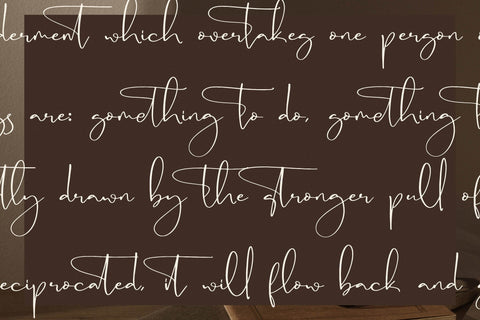 derment which overtakes one person
gs are: something to do, something
tly drawn by the stronger pull of
eciprocated, it will flow back and